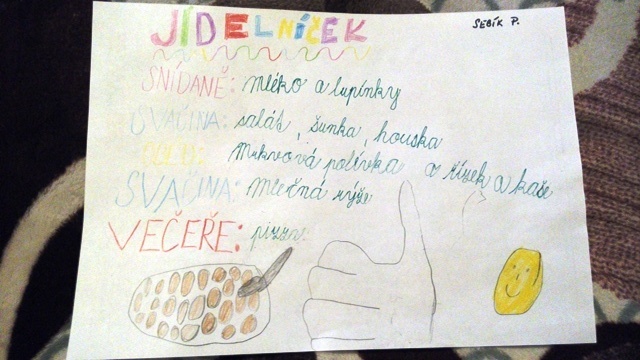 JÍDELNíČEK
SEBÍK P.
SNÍDANĚ: mléko a lupínky
SVAČINA: salát, šunka, houska
OBĚD: Mrkvová polívka a řízek a kaše
SVAČINA: Mléčná rýže
VEČEŘE: pizza